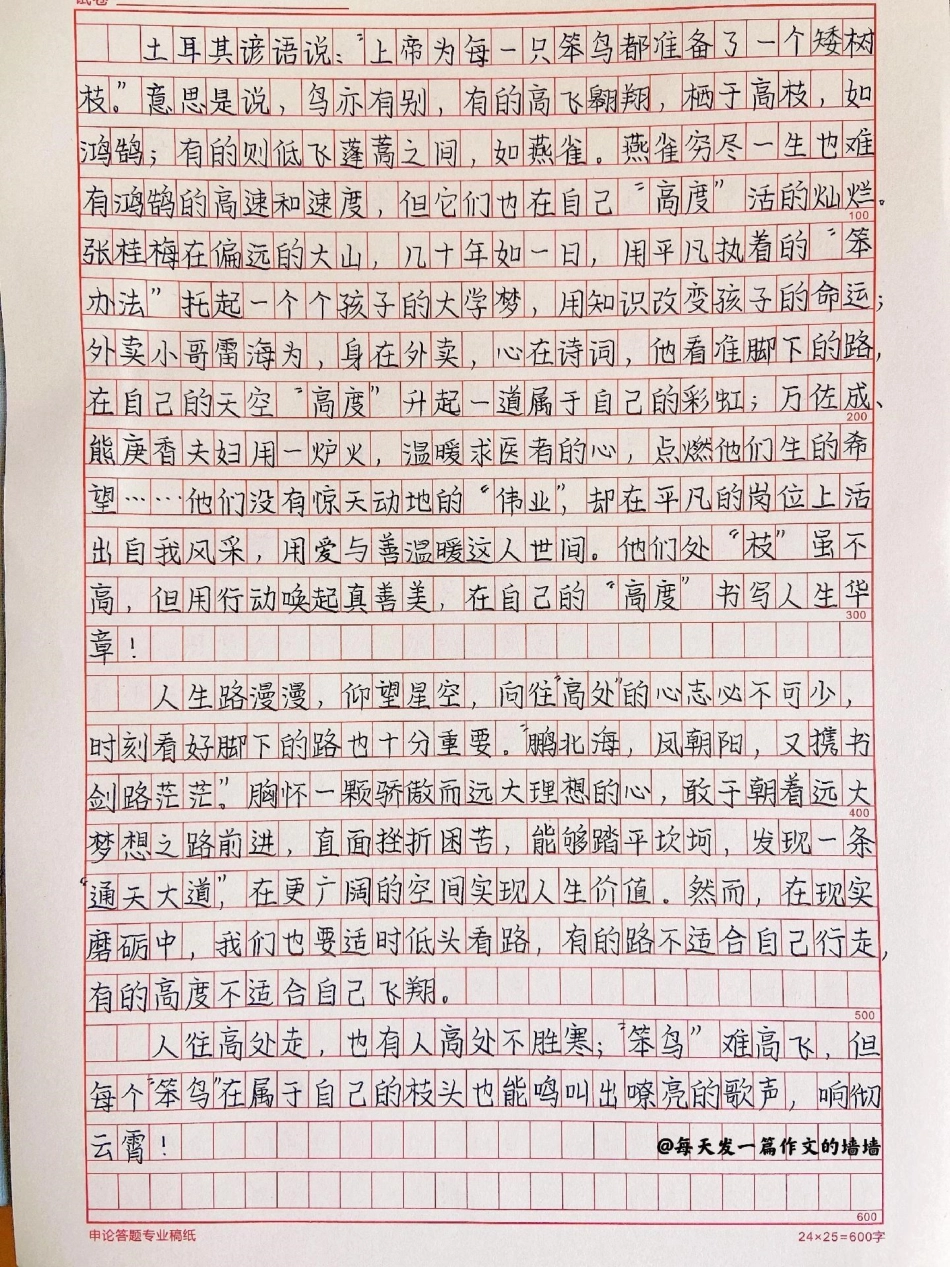 土耳其谚语说：“上帝为每一只笨鸟都准备了一个矮树
枝。”意思是说，鸟亦有别，有的高飞翱翔，栖于高枝，如
鸿鹄；有的则低飞蓬蒿之间，如燕雀。燕雀穷尽一生也难
有鸿鹄的高速和速度，但它们也在自己“高度”活的灿烂。
100
张桂梅在偏远的大山，几十年如一日，用平凡执着的“笨
办法”托起一个个孩子的大学梦，用知识改变孩子的命运；
外卖小哥雷海为，身在外卖，心在诗词，他看准脚下的路，
在自己的天空“高度”升起一道属于自己的彩虹；万佐成、
200
熊庚香夫妇用一炉火，温暖求医者的心，点燃他们生的希
望……他们没有惊天动地的“伟业”，却在平凡的岗位上活
出自我风采，用爱与善温暖这人世间。他们处“枝”虽不
高，但用行动唤起真善美，在自己的“高度”书写人生华
300
章！
人生路漫漫，仰望星空，向往“高处”的心志必不可少，
时刻看好脚下的路也十分重要。“鹏北海，凤朝阳，又携书
剑路茫茫”。胸怀一颗骄傲而远大理想的心，敢于朝着远大
400
梦想之路前进，直面挫折困苦，能够踏平坎坷，发现一条
“通天大道”，在更广阔的空间实现人生价值。然而，在现实
磨砺中，我们也要适时低头看路，有的路不适合自己行走，
有的高度不适合自己飞翔。
500
人往高处走，也有人高处不胜寒；“笨鸟”难高飞，但
每个“笨鸟”在属于自己的枝头也能鸣叫出嘹亮的歌声，响彻
云霄！
@每天发一篇作文的墙墙
600
申论答题专业稿纸
24×25=600字